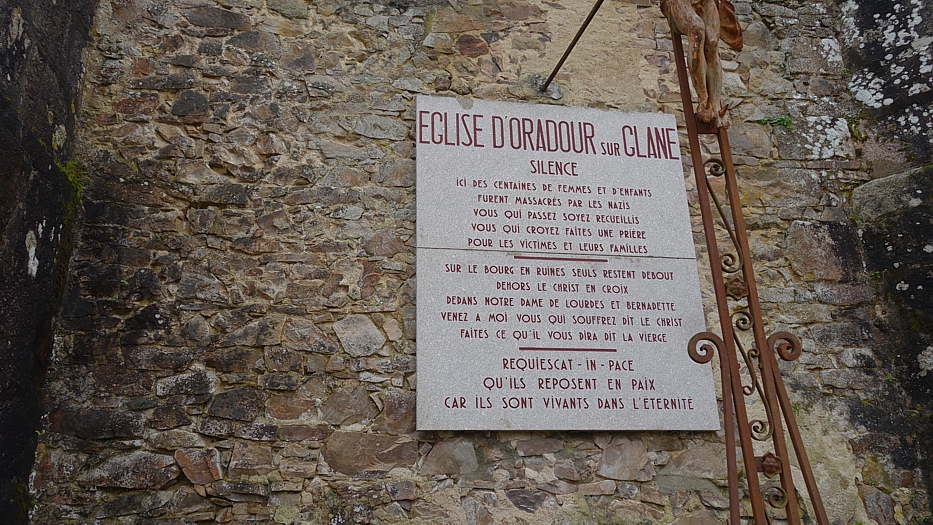 EGLISE D'ORADOUR SUR GLANE
SILENCE
ICI DES CENTAINES DE FEMMES ET D'ENFANTS
FURENT MASSACRÉS PAR LES NAZIS
VOUS QUI PASSEZ SOYEZ RECUEILLIS
VOUS QUI CROYEZ FAITES UNE PRIÈRE
POUR LES VICTIMES ET LEURS FAMILLES
SUR LE BOURG EN RUINES SEULS RESTENT DEBOUT
DEHORS LE CHRIST EN CROIX
DEDANS NOTRE DAME DE LOURDES ET BERNADETTE
VENEZ A MOI VOUS QUI SOUFFREZ DIT LE CHRIST
FAITES CE QU'IL VOUS DIRA DIT LA VIERGE
REQUIESCAT - IN - PACE
QU'ILS REPOSENT EN PAIX
CAR ILS SONT VIVANTS DANS L'ETERNITÉ